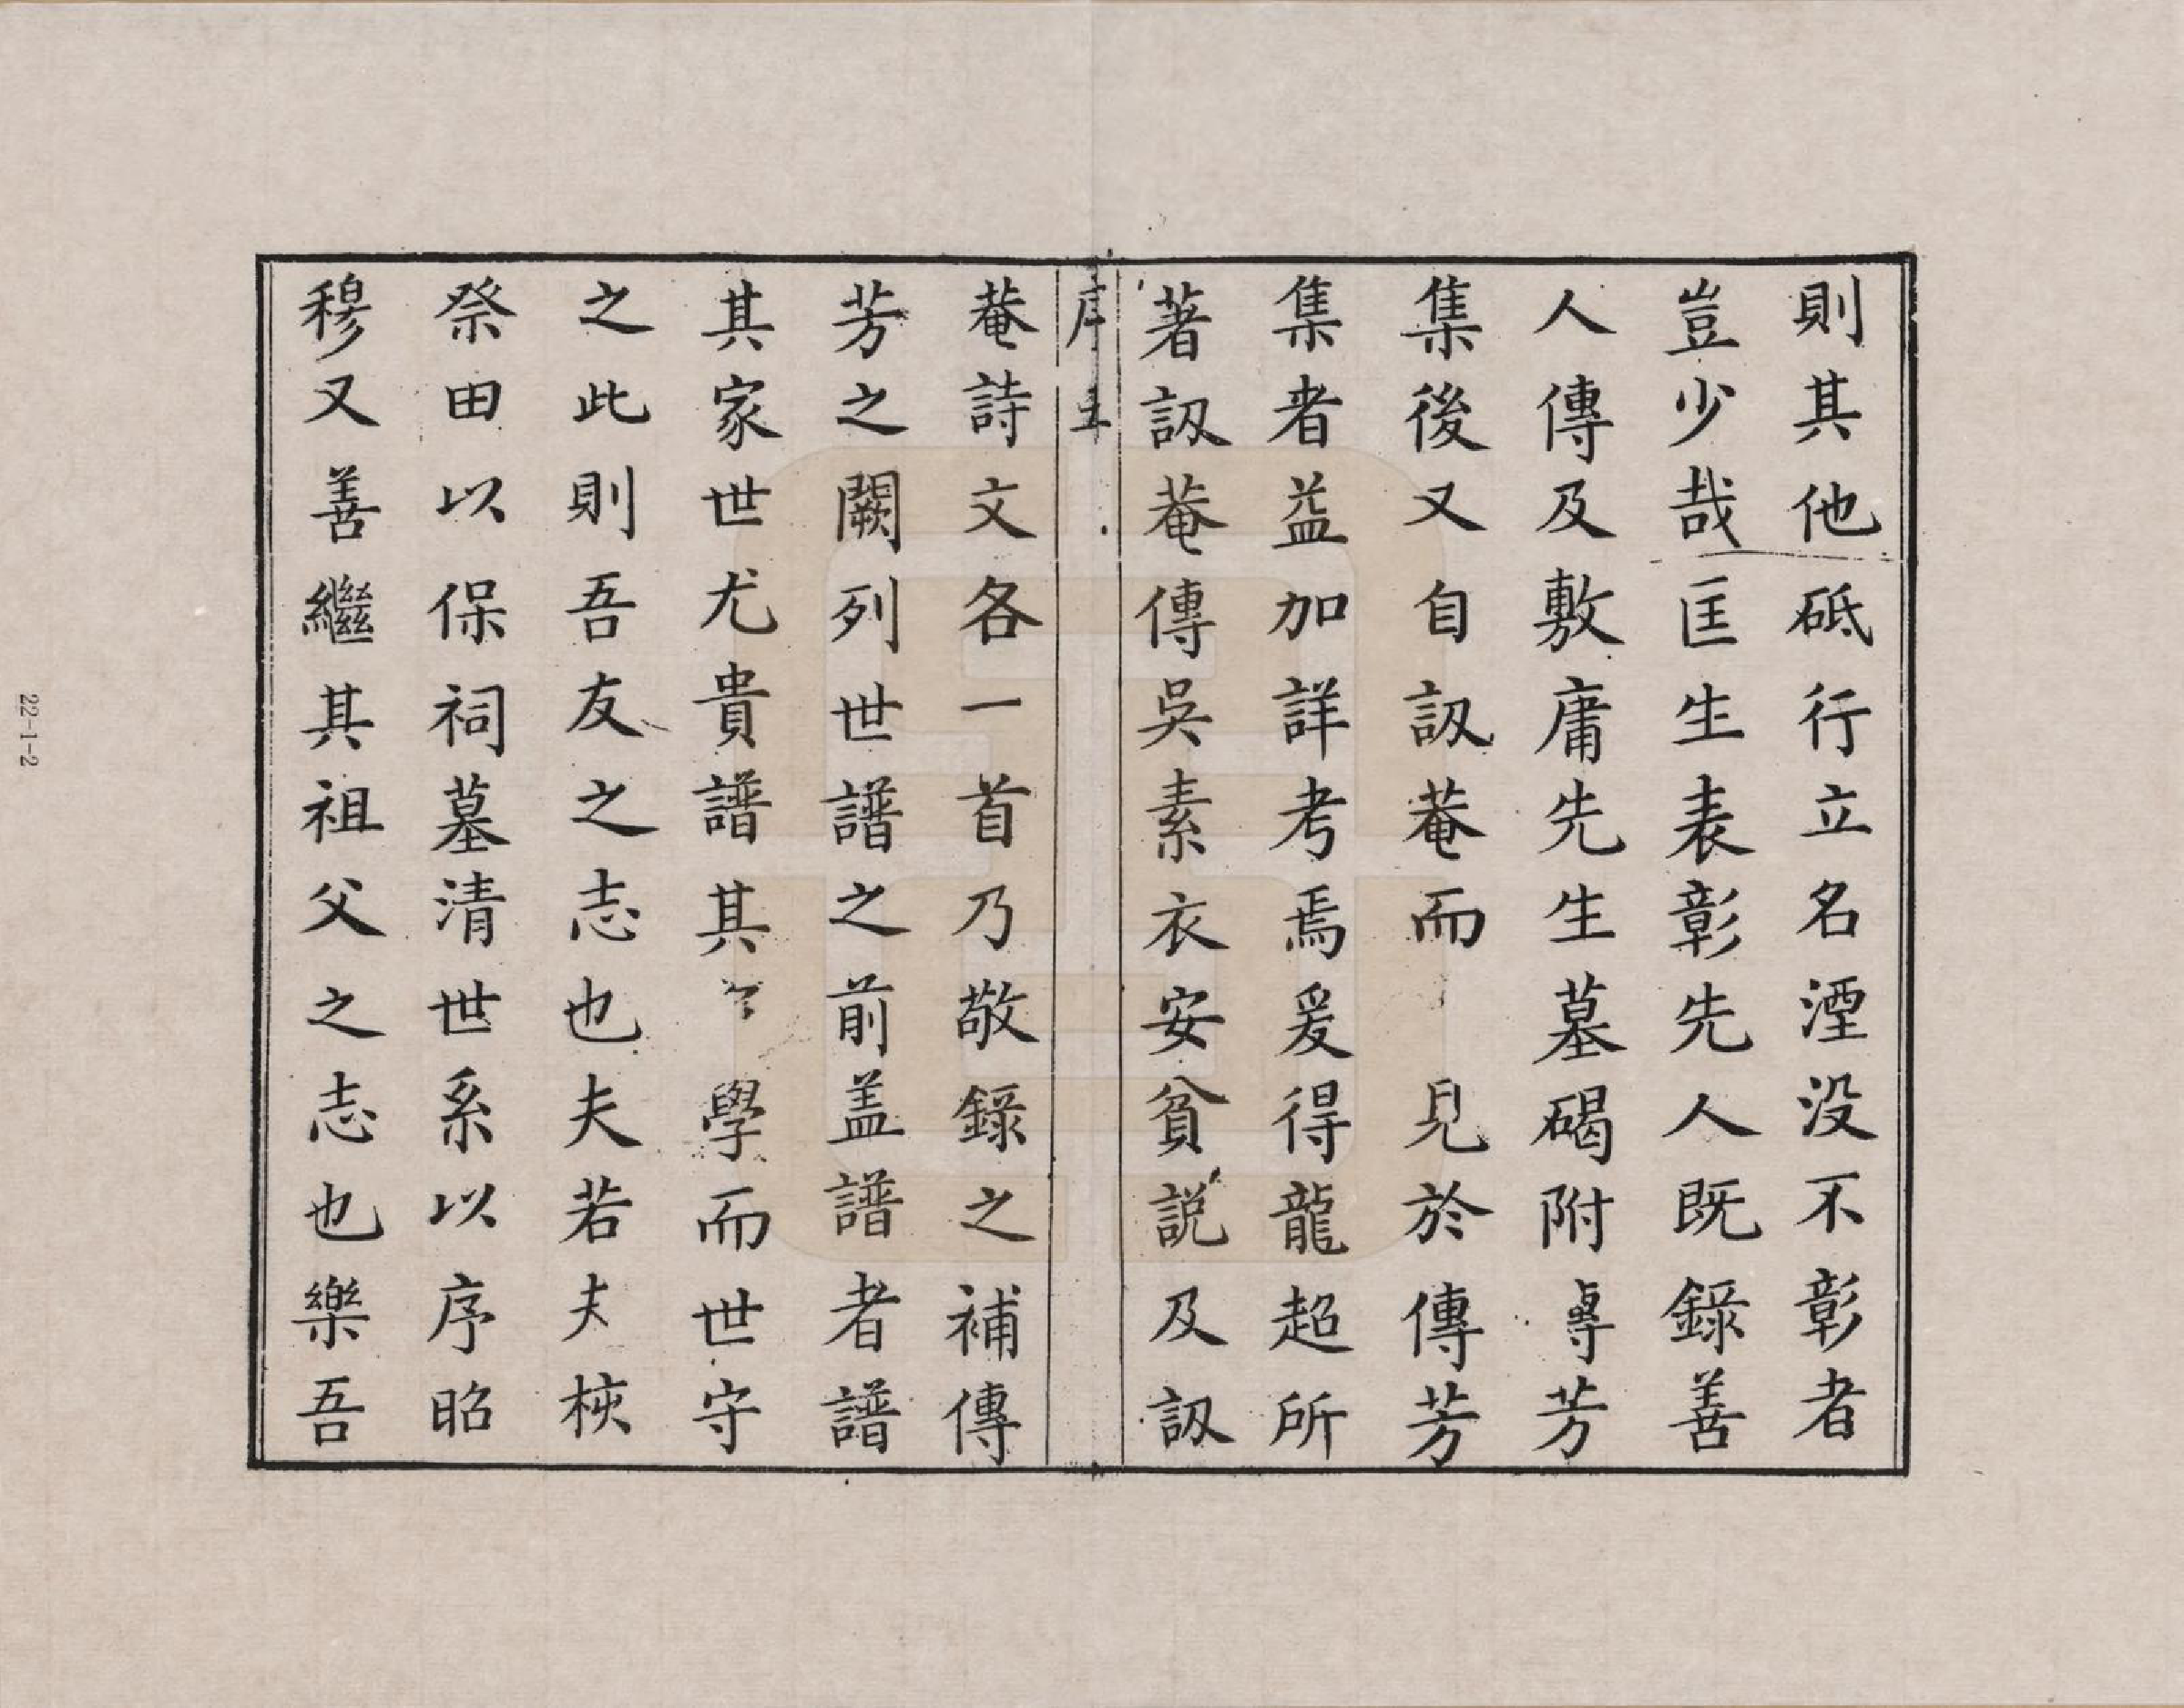 則其他砥行立名湮没不彰者
豈少哉匡生表彰先人既錄善
人傳及敷庸先生墓碣附專芳
集後又自訒菴而見於傳芳
集者益加詳考焉爰得龍超所
著訒菴傳吳素衣安貧説及訒
序五
菴詩文各一首乃敬錄之補傳
芳之闕列世譜之前盖譜者譜
其家世尤貴譜其學而世守
之此則吾友之志也夫若夫梜
祭田以保祠墓清世系以序昭
穆又善繼其祖父之志也樂吾
22-1-2